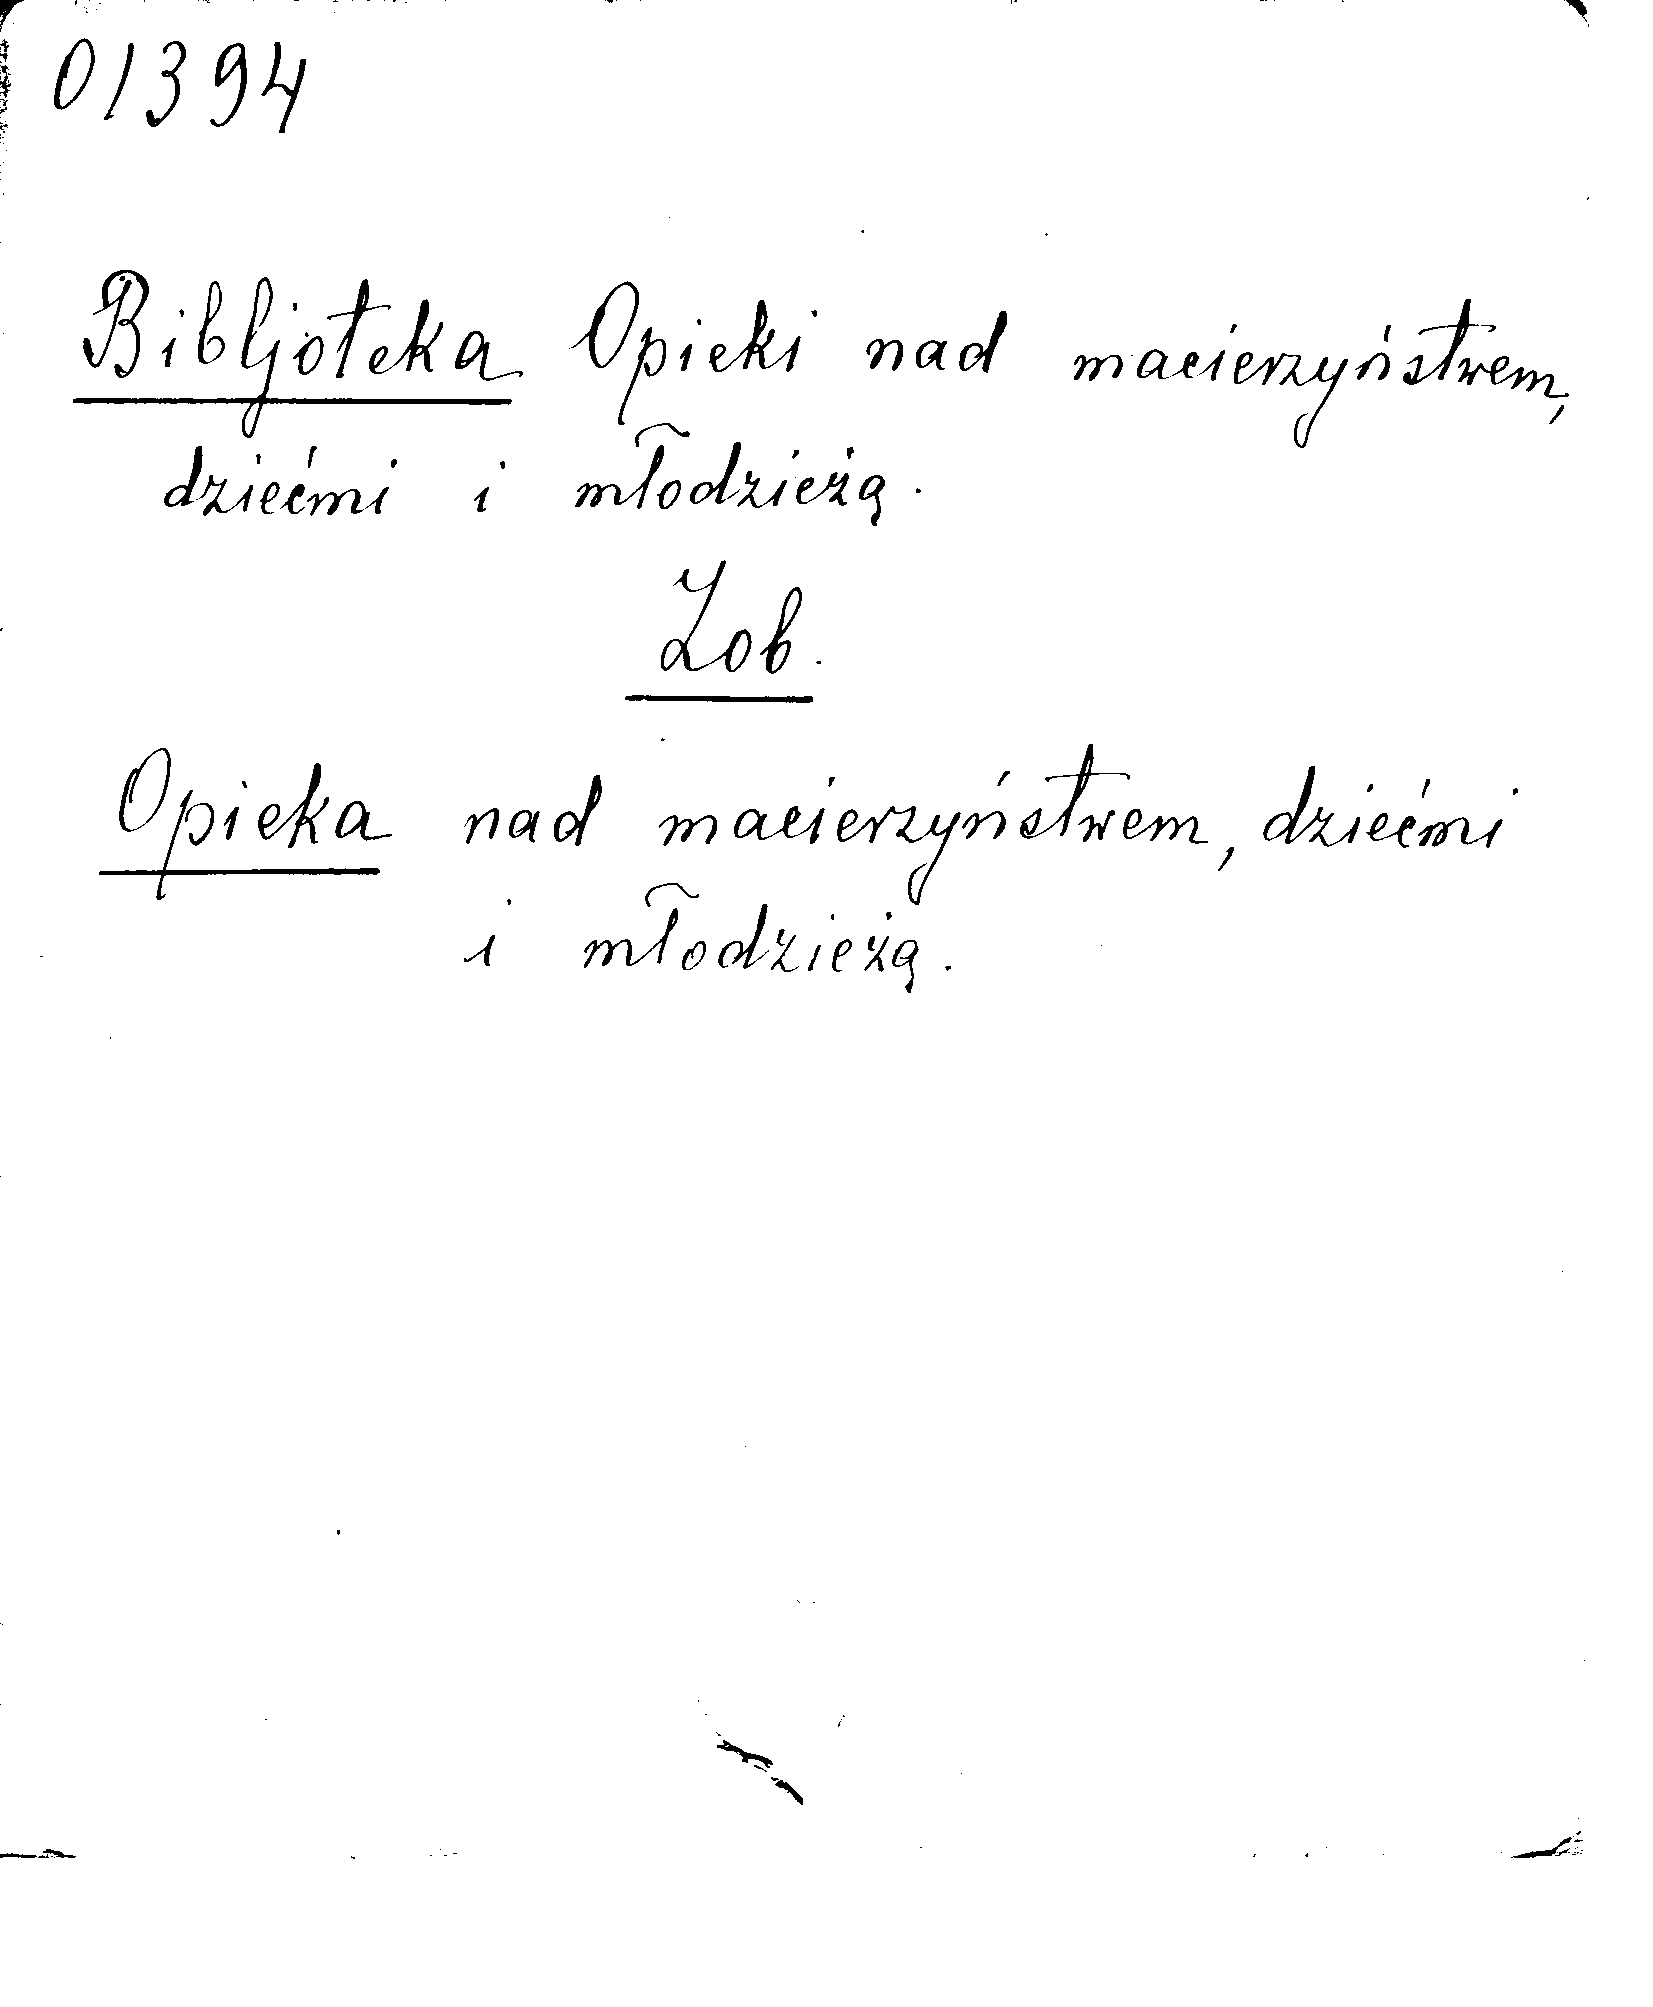 01394
Bibljoteka Opieki nad macierzyństwem,
dziećmi i młodzieżą.
Zob.
Opieka nad macierzyństwem, dziećmi
i młodzieżą.